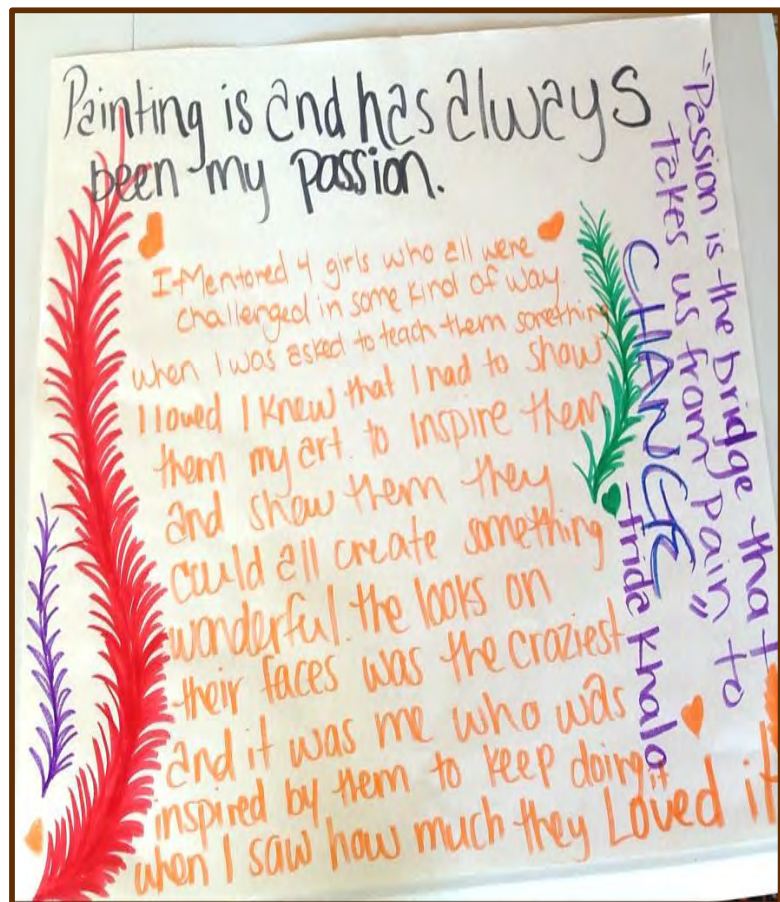 Painting is and has always
been my passion.
I Mentored 4 girls who all were
challenged in some kind of way.
when I was asked to teach them something
I loved I knew that I had to show
them my art to inspire them
and show them they
could all create something
wonderful. the looks on
their faces was the craziest
and it was me who was
inspired by them to keep doing it
when I saw how much they Loved it
"Passion is the bridge that
takes us from pain" to
CHANGE
-frida Khalo